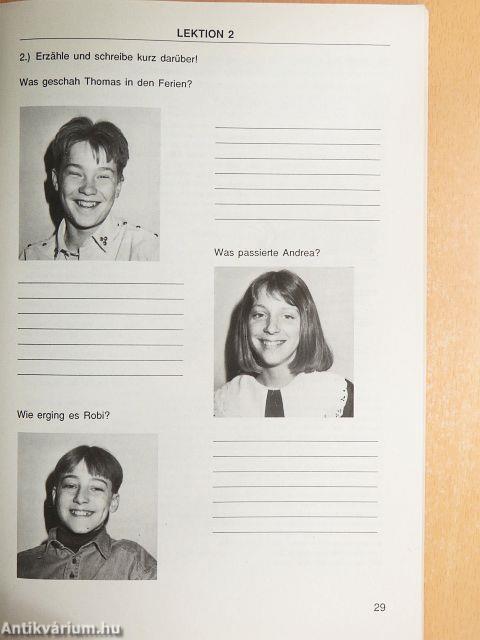 LEKTION 2
2.) Erzähle und schreibe kurz darüber!
Was geschah Thomas in den Ferien?
Was passierte Andrea?
Wie erging es Robi?
29
Antikvárium.hu